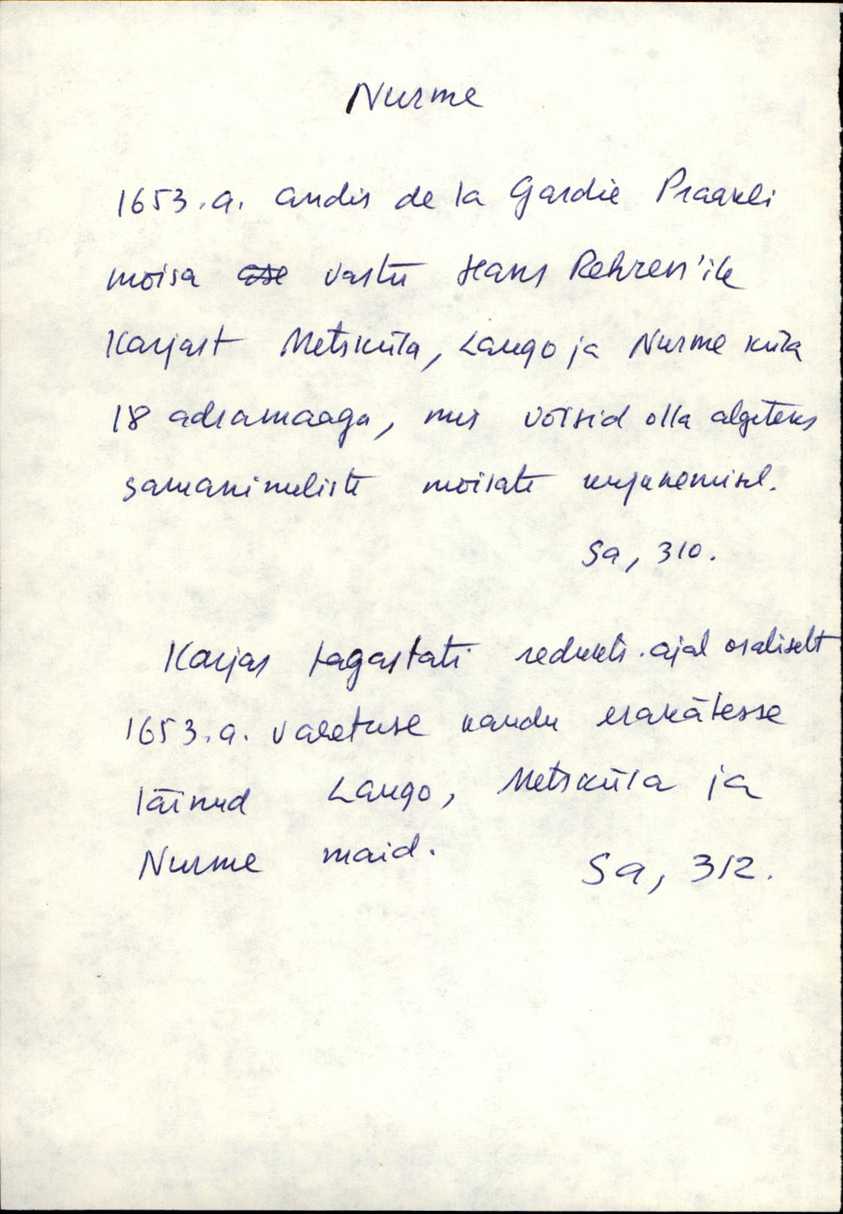 Nurme
1653.a. andis de la Gardie Praakli
mõisa vastu Hans Rehren'ile
Karjast Metsküla, Laugo ja Nurme küla
18 adramaaga, mis võisid olla algeteks
samanimeliste mõisate kujunemisel.
Sa, 310.
Karjas tagastati redukts. ajal osaliselt
1653.a. vahetuse kaudu erakätesse
läinud Laugo, Metsküla ja
Nurme maid.
Sa, 312.